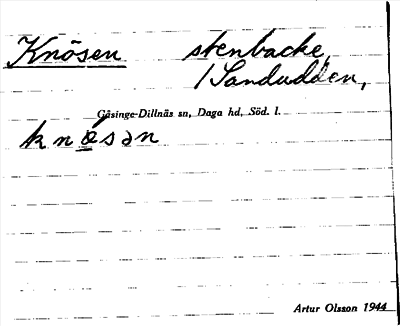 Knösen stenbacke,
/Sandudden,
Gåsinge-Dillnäs sn, Daga hd, Söd. l.
knö́sən
Artur Olsson 1944